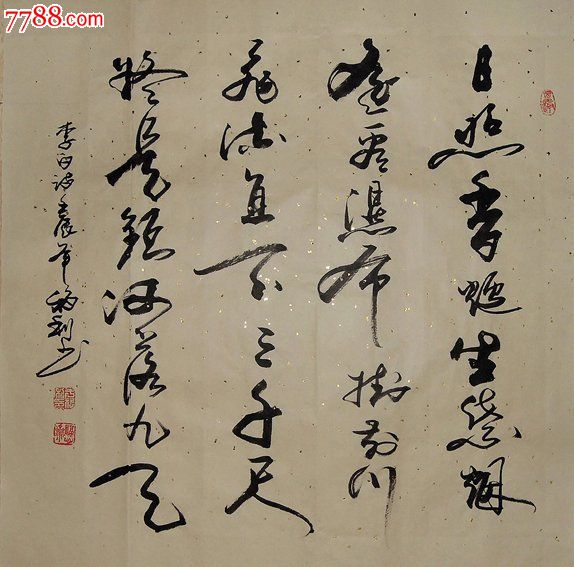 7788.com
日照香爐生紫烟
遥看瀑布掛前川
飛流直下三千尺
疑是銀河落九天
李白诗壬辰年利书